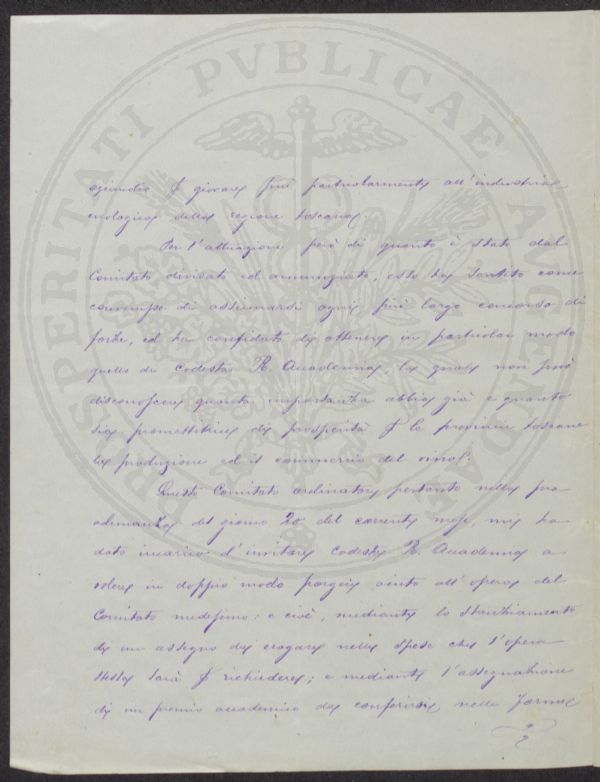 PROSPERITATI PVBLICAE AVGENDAE
eziandio p giovare più particolarmente all'industria
enologica della regione toscana.
Per l'attuazione però di quanto è stato dal
Comitato divisato ed annunziato, esso ha sentito come
convenga di assicurarsi ogni più largo concorso di
forze, ed ha confidato di ottenere in particolar modo
quello di codesta R. Accademia, la quale non può
disconoscere quanta importanza abbia già e quanto
sia promettitrice di prosperità p le provincie toscane
la produzione ed il commercio del vino.
Questo Comitato ordinatore pertanto nella sua
adunanza del giorno 20 del corrente mese, mi ha
dato incarico d'invitare codesta R. Accademia a
volere in doppio modo porgere aiuto all'opera del
Comitato medesimo: e cioè, mediante lo stanziamento
di un assegno da erogare nelle spese che l'opera
stessa sarà p richiedere; e mediante l'assegnazione
di un premio accademico da conferirsi nella forma